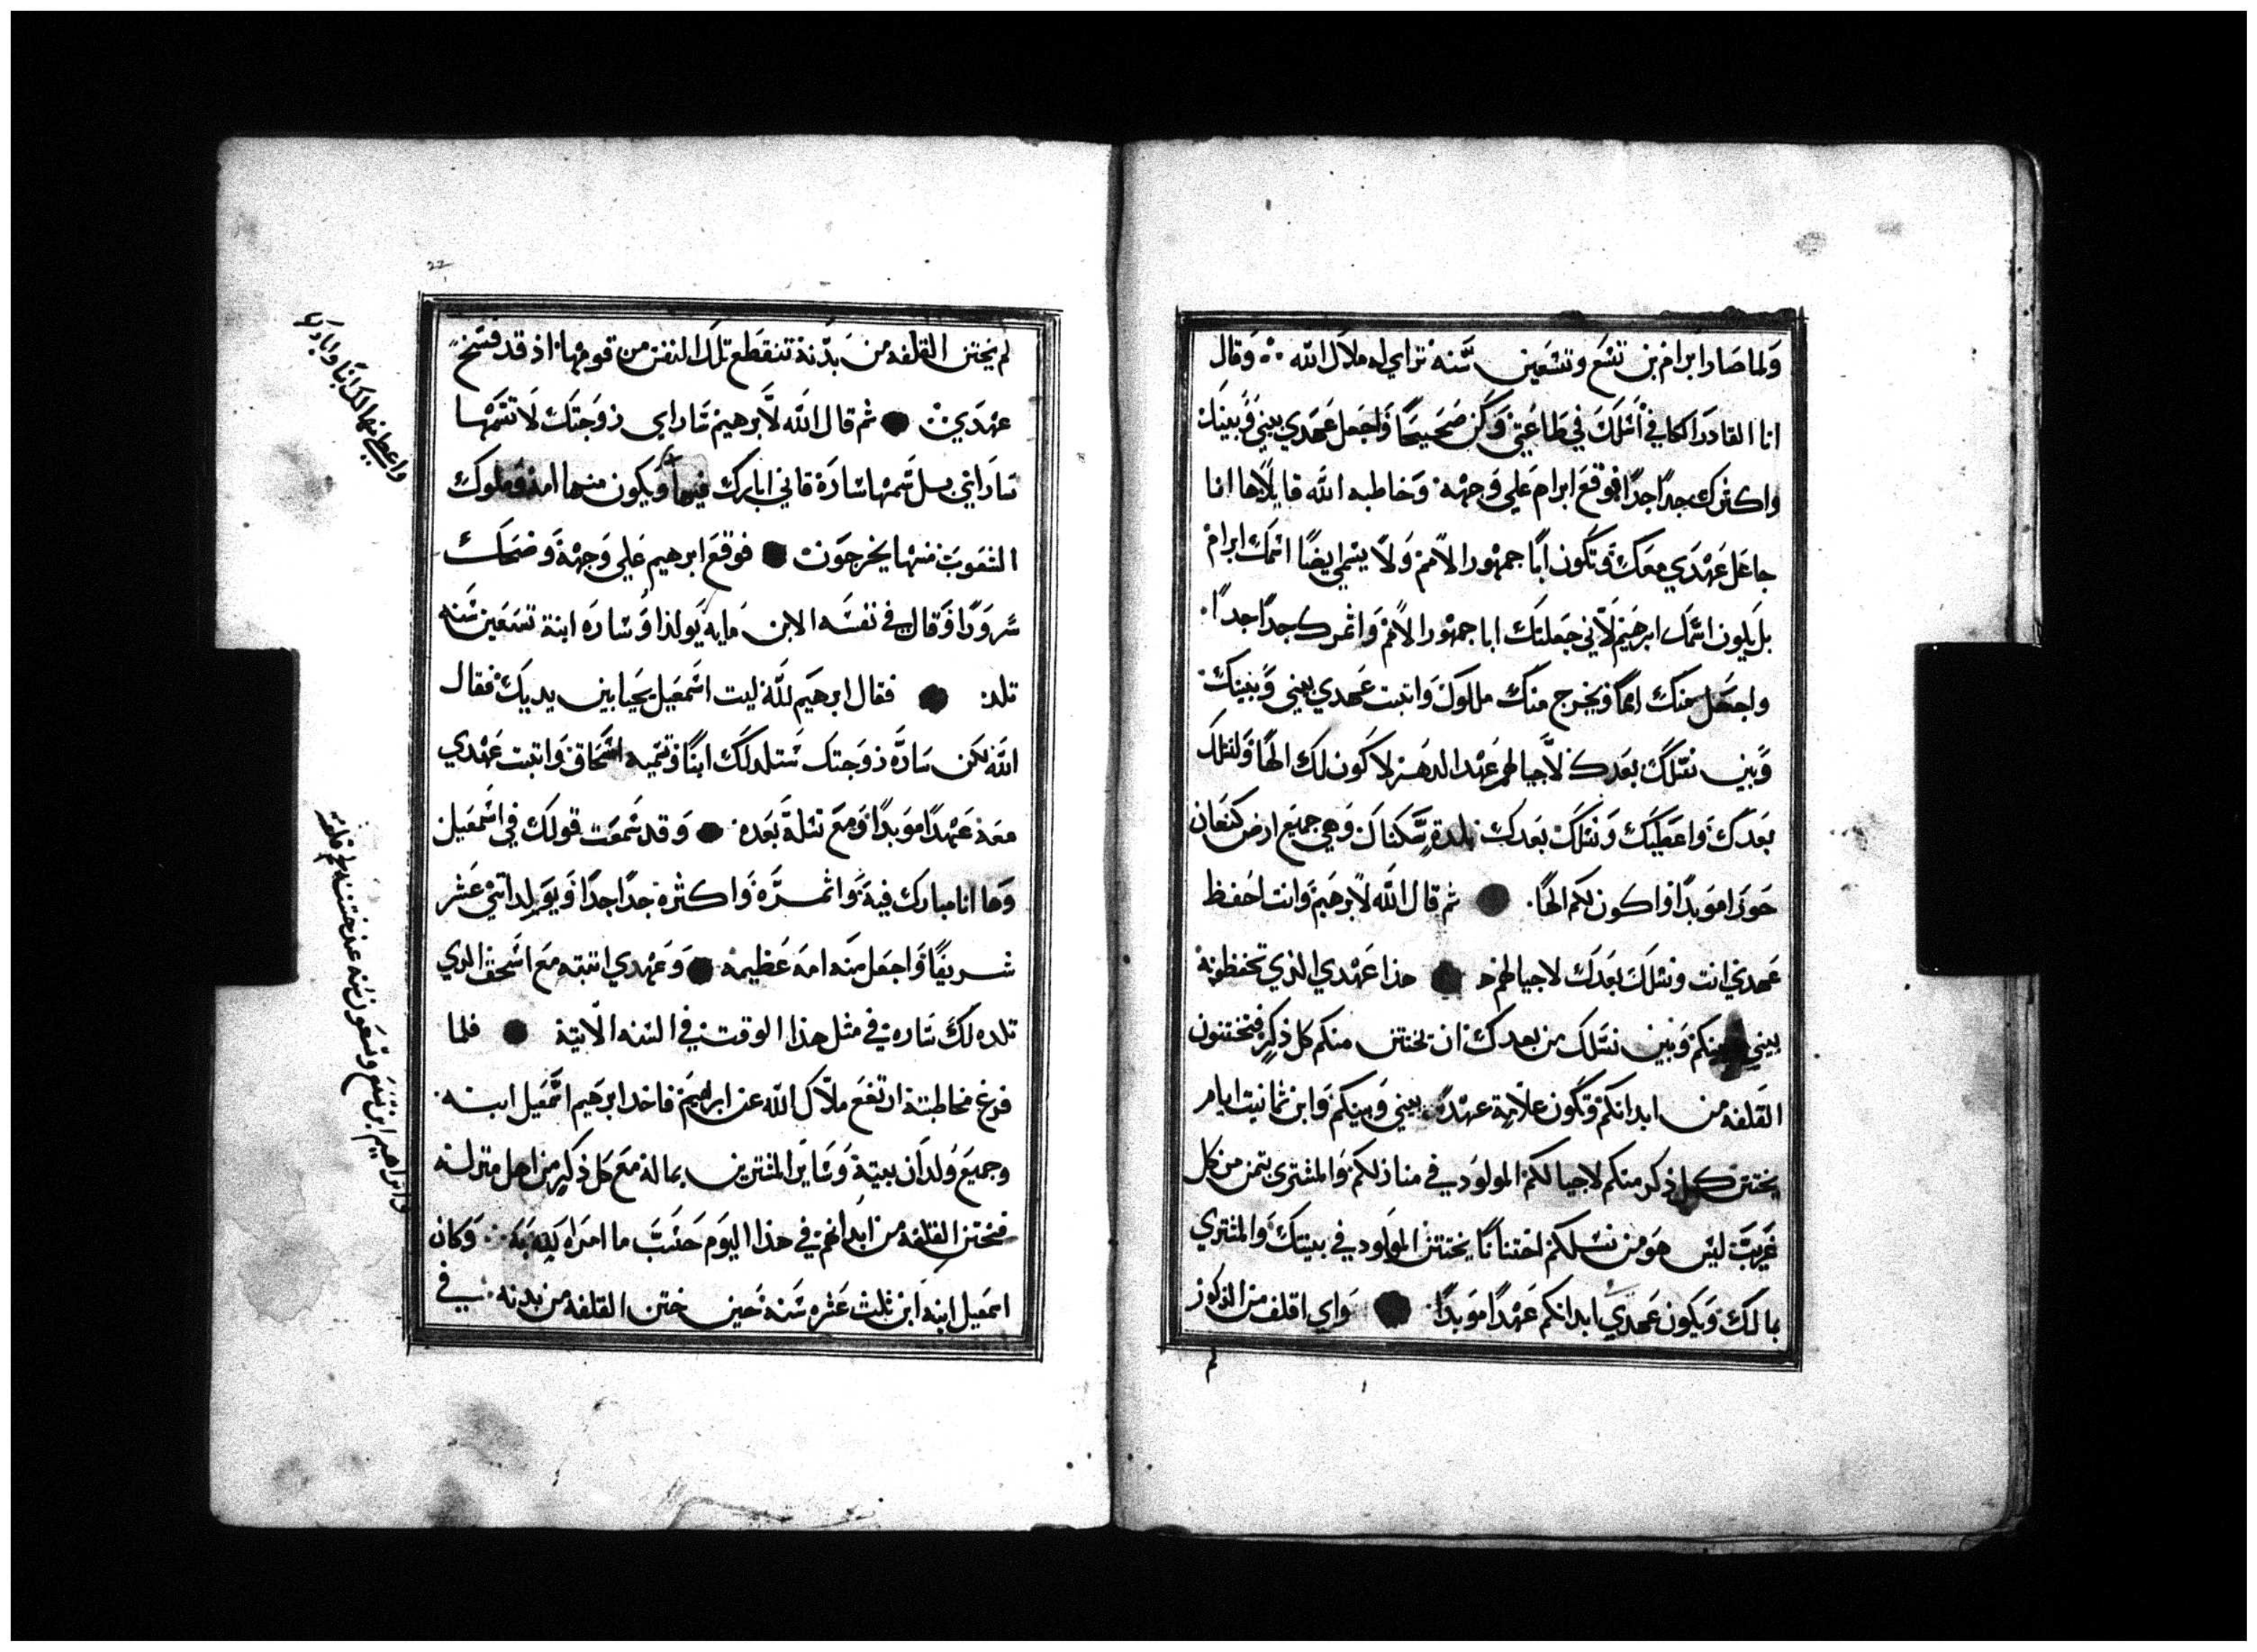 ولما صار ابرام بن تسع وتسعين سنه تراي له ملاك الله وقال
انا القادر الكافي اسلك في طاعتي وكن صحيحا واجعل عهدي بيني وبينك
واكثرك جدا جدا فوقع ابرام علي وجهه وخاطبه الله قايلا ها انا
جاعل عهدي معك وتكون ابا جمهور الامم ولا يسمي ايضا اسمك ابرام
بل يكون اسمك ابرهيم لاني جعلتك ابا جمهور الامم واثمرك جدا جدا
واجعل منك امما ويخرج منك ملوك واتبت عهدي بيني وبينك
وبين نسلك بعدك لاجيالهم عهد الدهر لاكون لك الها ولنسلك
بعدك واعطيك ونسلك بعدك بلدة سكناك وهي جميع ارض كنعان
حوزا موبدا واكون لكم الها ثم قال الله لابرهيم وانت احفظ
عهدي انت ونسلك بعدك لاجيالهم هذا عهدي الذي تحفظونه
بيني وبينكم وبين نسلك من بعدك ان يختتن منكم كل ذكر فتختنون
القلفه من ابدانكم وتكون علامة عهد بيني وبينكم وابن ثمانيت ايام
يختتن كل ذكر منكم لاجيالكم المولود في منازلكم والمشتري بثمن من كل
غريب ليس هو من نسلكم اختتانا يختتن المولود في بيتك والمشتري
بمالك ويكون عهدي ابدانكم عهدا موبدا واي اقلف من الذكور
لم
22
لم يختن القلفه من بدنه تنقطع تلك النفس من قومها اذ قد فسخ
عهدي ثم قال الله لابرهيم ساراي زوجتك لا تسمها
ساراي بل سمها سارة فاني ابارك فيها ويكون منها امه وملوك
الشعوب منها يخرجون فوقع ابرهيم علي وجهه وضحك
سرورا وقال في نفسه الابن مايه يولد وساره ابنة تسعين سنه
تلد فقال ابرهيم لله ليت اسمعيل يحيا بين يديك فقال
الله لكن ساره زوجتك ستلد لك ابنا وتسميه اسحاق واتبت عهدي
معه عهدا موبدا ومع نسله بعده وقد سمعت قولك في اسمعيل
وها انا مبارك فيه واثمره واكثره جدا جدا ويولد اثني عشر
شريفا واجعل منه امه عظيمه وعهدي اتبته مع اسحق الدي
تلده لك ساره في مثل هذا الوقت في السنه الاتية فلما
فرغ مخاطبته ارتفع ملاك الله عن ابراهيم فاخد ابرهيم اسمعيل ابنه
وجميع ولدان بيته وساير المشترين بماله مع كل ذكر من اهل منزله
فختن القلفه من ابدانهم في هذا اليوم حسب ما امره الله به وكان
اسمعيل ابنه ابن ثلث عشره سنه حين ختن القلفه من بدنه في
واعطي منها لك ابنا واباركه
وابراهيم ابن تسع وتسعون سنه عند ختنه لحم قلفته